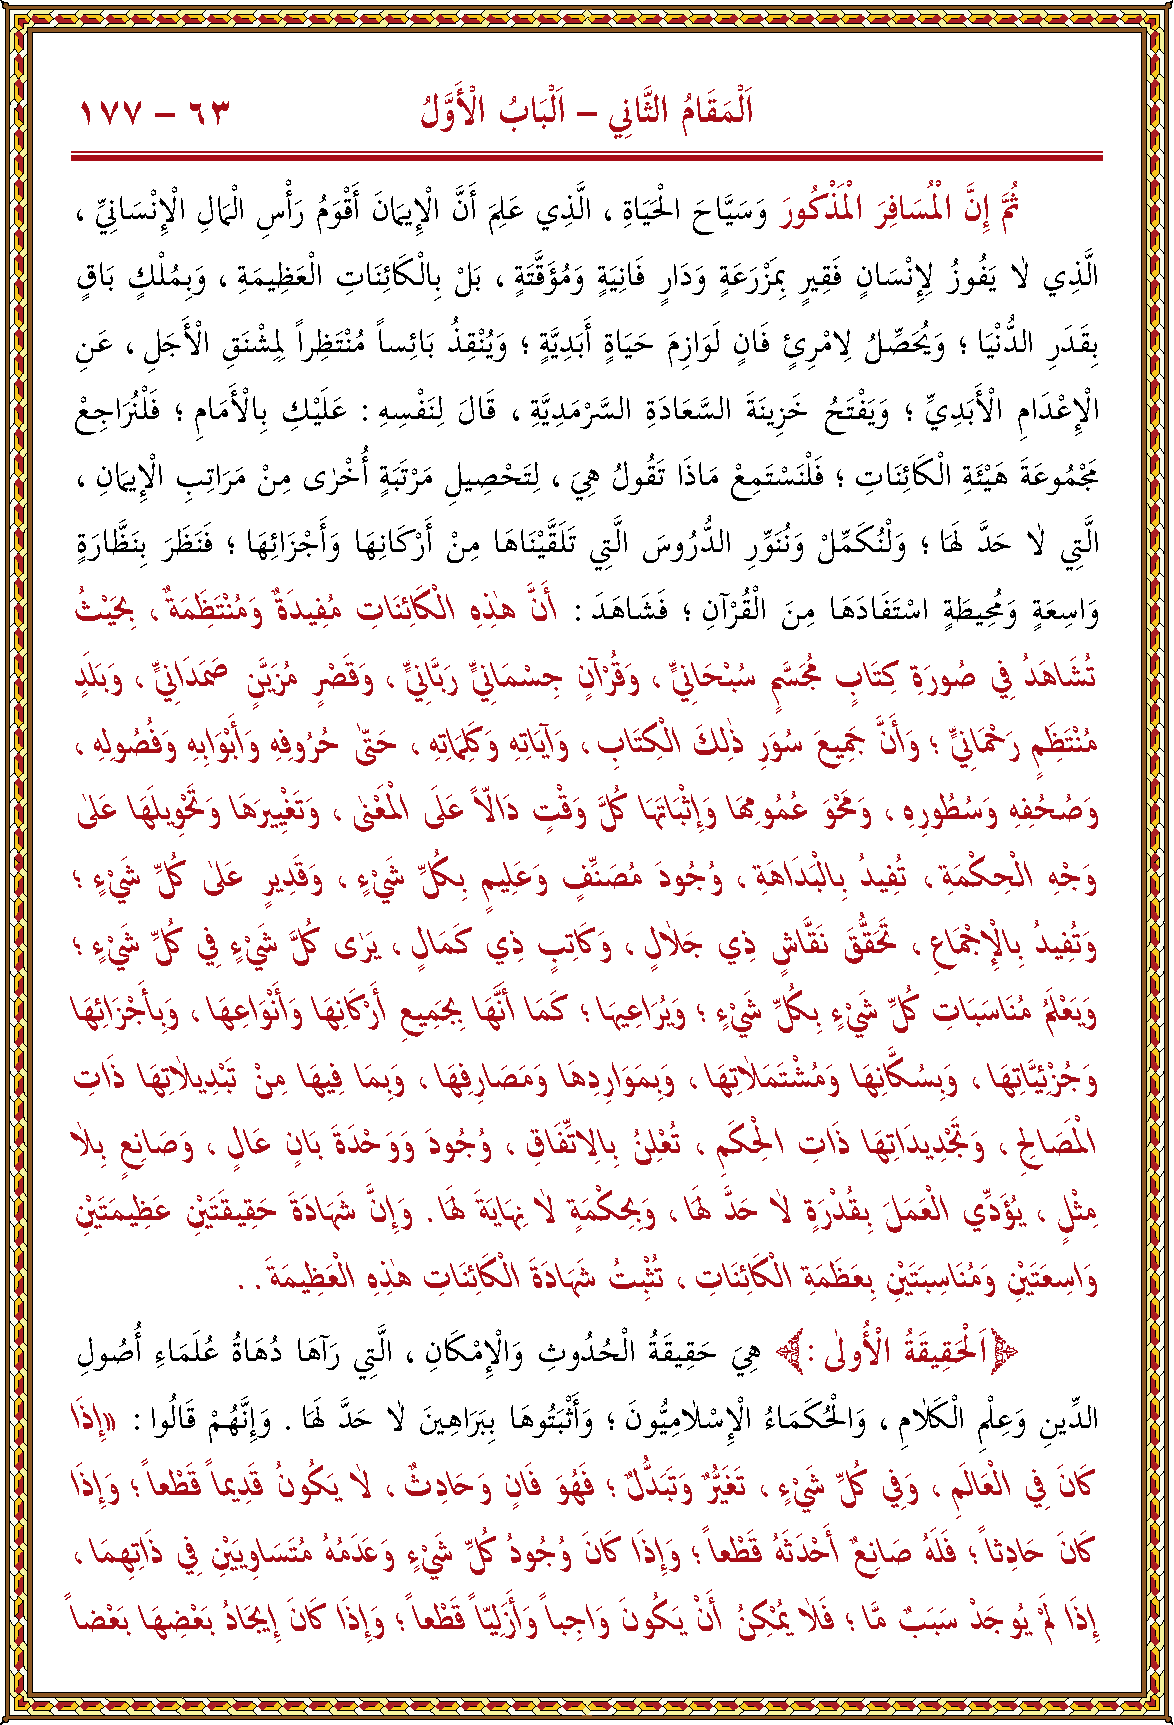 اَلْمَقَامُ الثَّانِي – اَلْبَابُ الْأَوَّلُ ٦٣ – ١٧٧
ثُمَّ إِنَّ الْمُسَافِرَ الْمَذْكُورَ وَسَيَّاحَ الْحَيَاةِ ، الَّذِي عَلِمَ أَنَّ الْإِيمَانَ أَقْوَمُ رَأْسِ الْمَالِ الْإِنْسَانِيِّ ،
الَّذِي لَا يَفُوزُ لِإِنْسَانٍ فَقِيرٍ بِمَزْرَعَةٍ وَدَارٍ فَانِيَةٍ وَمُؤَقَّتَةٍ ، بَلْ بِالْكَائِنَاتِ الْعَظِيمَةِ ، وَبِمُلْكٍ بَاقٍ
بِقَدَرِ الدُّنْيَا ؛ وَيُحَصِّلُ لِامْرِئٍ فَانٍ لَوَازِمَ حَيَاةٍ أَبَدِيَّةٍ ؛ وَيُنْقِذُ بَائِساً مُنْتَظِراً لِمِشْنَقِ الْأَجَلِ ، عَنِ
الْإِعْدَامِ الْأَبَدِيِّ ؛ وَيَفْتَحُ خَزِينَةَ السَّعَادَةِ السَّرْمَدِيَّةِ ، قَالَ لِنَفْسِهِ : عَلَيْكِ بِالْأَمَامِ ؛ فَلْنُرَاجِعْ
مَجْمُوعَةَ هَيْئَةِ الْكَائِنَاتِ ؛ فَلْنَسْتَمِعْ مَاذَا تَقُولُ هِيَ ، لِتَحْصِيلِ مَرْتَبَةٍ أُخْرٰى مِنْ مَرَاتِبِ الْإِيمَانِ ،
الَّتِي لَا حَدَّ لَهَا ؛ وَلْنُكَمِّلْ وَنُنَوِّرِ الدُّرُوسَ الَّتِي تَلَقَّيْنَاهَا مِنْ أَرْكَانِهَا وَأَجْزَائِهَا ؛ فَنَظَرَ بِنَظَّارَةٍ
وَاسِعَةٍ وَمُحِيطَةٍ اسْتَفَادَهَا مِنَ الْقُرْآنِ ؛ فَشَاهَدَ : أَنَّ هٰذِهِ الْكَائِنَاتِ مُفِيدَةٌ وَمُنْتَظَمَةٌ ، بِحَيْثُ
تُشَاهَدُ فِي صُورَةِ كِتَابٍ مُجَسَّمٍ سُبْحَانِيٍّ ، وَقُرْآنٍ جِسْمَانِيٍّ رَبَّانِيٍّ ، وَقَصْرٍ مُزَيَّنٍ صَمَدَانِيٍّ ، وَبَلَدٍ
مُنْتَظَمٍ رَحْمَانِيٍّ ؛ وَأَنَّ جَمِيعَ سُوَرِ ذٰلِكَ الْكِتَابِ ، وَآيَاتِهِ وَكَلِمَاتِهِ ، حَتّٰى حُرُوفِهِ وَأَبْوَابِهِ وَفُصُولِهِ ،
وَصُحُفِهِ وَسُطُورِهِ ، وَمَحْوَ عُمُومِهَا وَإِثْبَاتَهَا كُلَّ وَقْتٍ دَالاًّ عَلَى الْمَعْنٰى ، وَتَغْيِيرَهَا وَتَحْوِيلَهَا عَلٰى
وَجْهِ الْحِكْمَةِ ، تُفِيدُ بِالْبَدَاهَةِ ، وُجُودَ مُصَنِّفٍ وَعَلِيمٍ بِكُلِّ شَيْءٍ ، وَقَدِيرٍ عَلٰى كُلِّ شَيْءٍ ؛
وَتُفِيدُ بِالْإِجْمَاعِ ، تَحَقُّقَ نَقَّاشٍ ذِي جَلَالٍ ، وَكَاتِبٍ ذِي كَمَالٍ ، يَرٰى كُلَّ شَيْءٍ فِي كُلِّ شَيْءٍ ؛
وَيَعْلَمُ مُنَاسَبَاتِ كُلِّ شَيْءٍ بِكُلِّ شَيْءٍ ؛ وَيُرَاعِيهَا ؛ كَمَا أَنَّهَا بِجَمِيعِ أَرْكَانِهَا وَأَنْوَاعِهَا ، وَبِأَجْزَائِهَا
وَجُزْئِيَّاتِهَا ، وَبِسُكَّانِهَا وَمُشْتَمَلَاتِهَا ، وَبِمَوَارِدِهَا وَمَصَارِفِهَا ، وَبِمَا فِيهَا مِنْ تَبْدِيلَاتِهَا ذَاتِ
الْمَصَالِحِ ، وَتَجْدِيدَاتِهَا ذَاتِ الْحِكَمِ ، تُعْلِنُ بِالِاتِّفَاقِ ، وُجُودَ وَوَحْدَةَ بَانٍ عَالٍ ، وَصَانِعٍ بِلَا
مِثْلٍ ، يُؤَدِّي الْعَمَلَ بِقُدْرَةٍ لَا حَدَّ لَهَا ، وَبِحِكْمَةٍ لَا نِهَايَةَ لَهَا . وَإِنَّ شَهَادَةَ حَقِيقَتَيْنِ عَظِيمَتَيْنِ
وَاسِعَتَيْنِ وَمُنَاسِبَتَيْنِ بِعَظَمَةِ الْكَائِنَاتِ ، تُثْبِتُ شَهَادَةَ الْكَائِنَاتِ هٰذِهِ الْعَظِيمَةَ . .
﴿اَلْحَقِيقَةُ الْأُولٰى :﴾ هِيَ حَقِيقَةُ الْحُدُوثِ وَالْإِمْكَانِ ، الَّتِي رَآهَا دُهَاةُ عُلَمَاءِ أُصُولِ
الدِّينِ وَعِلْمِ الْكَلَامِ ، وَالْحُكَمَاءُ الْإِسْلَامِيُّونَ ؛ وَأَثْبَتُوهَا بِبَرَاهِينَ لَا حَدَّ لَهَا . وَإِنَّهُمْ قَالُوا : «إِذَا
كَانَ فِي الْعَالَمِ ، وَفِي كُلِّ شَيْءٍ ، تَغَيُّرٌ وَتَبَدُّلٌ ؛ فَهُوَ فَانٍ وَحَادِثٌ ، لَا يَكُونُ قَدِيماً قَطْعاً ؛ وَإِذَا
كَانَ حَادِثاً ؛ فَلَهُ صَانِعٌ أَحْدَثَهُ قَطْعاً ؛ وَإِذَا كَانَ وُجُودُ كُلِّ شَيْءٍ وَعَدَمُهُ مُتَسَاوِيَيْنِ فِي ذَاتِهِمَا ،
إِذَا لَمْ يُوجَدْ سَبَبٌ مَّا ؛ فَلَا يُمْكِنُ أَنْ يَكُونَ وَاجِباً وَأَزَلِيًّا قَطْعاً ؛ وَإِذَا كَانَ إِيجَادُ بَعْضِهَا بَعْضاً